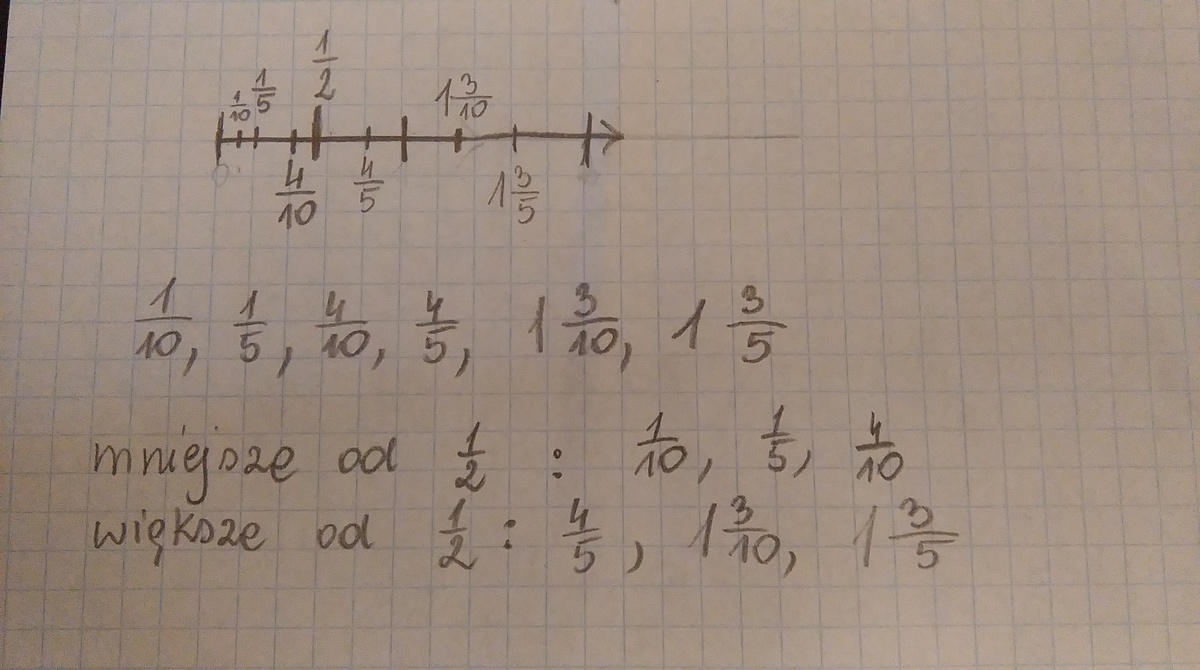 1/2
1/10 1/5 1 3/10
0
4/10 4/5 1 3/5
1/10, 1/5, 4/10, 4/5, 1 3/10, 1 3/5
mniejsze od 1/2 : 1/10, 1/5, 4/10
większe od 1/2 : 4/5, 1 3/10, 1 3/5